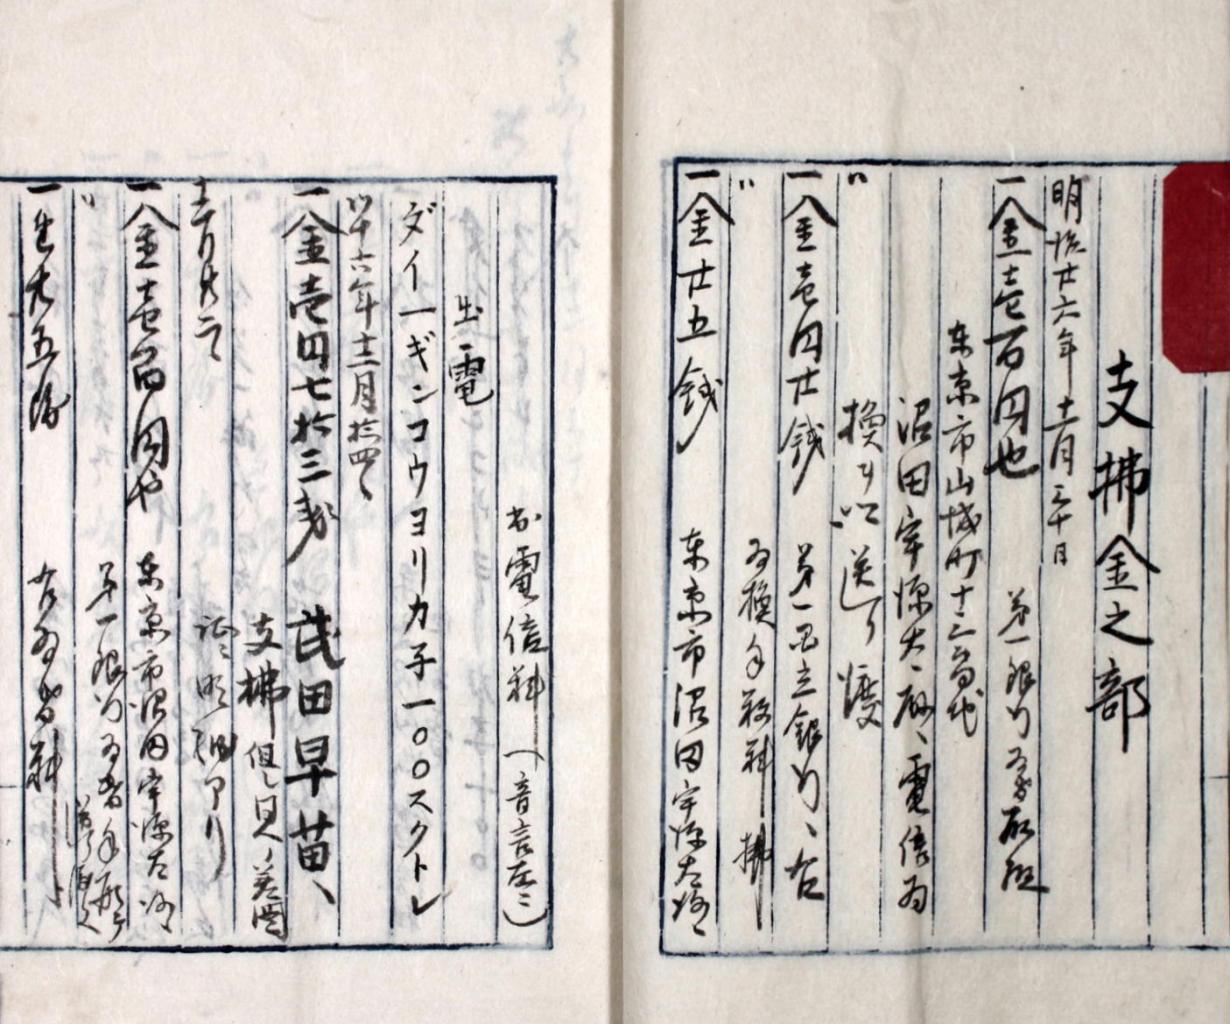 支拂金之部
明治廿六年十二月三十日
一金壱百円也 第一銀行為替取組
東京市山城町十三番地
沼田宇源太ヘ電信為
換ヲ以送リ渡
〃
一金壱円廿銭 第一国立銀行ヘ右
〃 為換手数料拂
一金廿五銭 東京市沼田宇源太ヘ
出電信料(音言左ニ)
出電
ダイ一ギンコウヨリカ子一〇〇スクトレ
廿六年十二月拾四日
一金壱円七拾三銭 茂田早苗ヘ
支拂但し
証明細アリ
十二月廿二日
一金壱百円也 東京市沼田宇源太
〃 第一銀行為替手形
一金廿五銭 右為替料